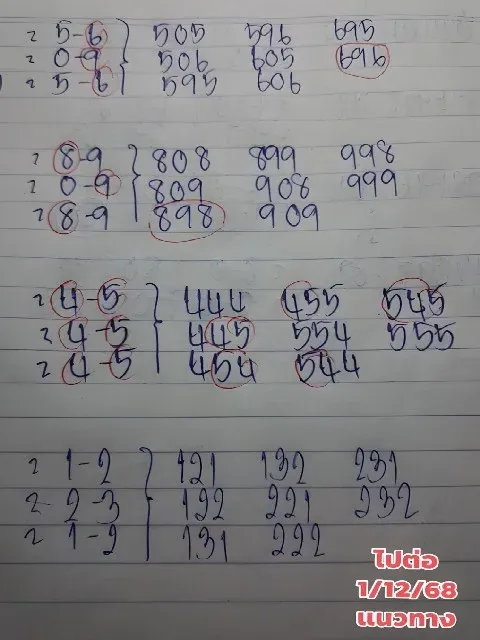 = 5-6 } 505 596 695
= 0-9 506 605 696
= 5-6 595 606
= 8-9 } 808 899 998
= 0-9 809 908 999
= 8-9 898 909
= 4-5 } 444 455 545
= 4-5 445 554 555
= 4-5 454 544
= 1-2 } 121 132 231
= 2-3 122 221 232
= 1-2 131 222
ไปต่อ
1/12/68
แนวทาง